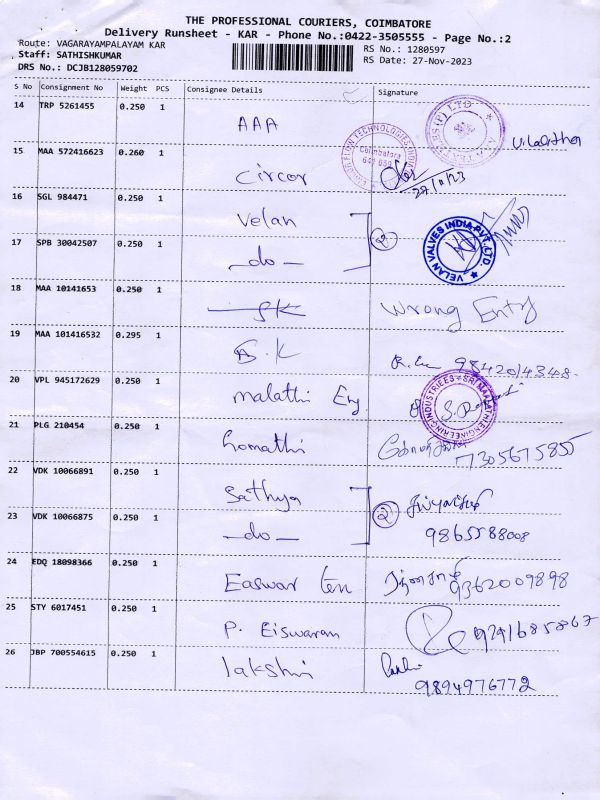 THE PROFESSIONAL COURIERS, COIMBATORE
Delivery Runsheet - KAR - Phone No.:0422-3505555 - Page No.:2
Route: VAGARAYAMPALAYAM KAR
RS No.: 1280597
Staff: SATHISHKUMAR
RS Date: 27-Nov-2023
DRS No.: DCJB128059702
S No Consignment No Weight PCS Consignee Details Signature
14 TRP 5261455 0.250 1 AAA
15 MAA 572416623 0.260 1 Circor 27/11/23
16 SGL 984471 0.250 1 Velan
17 SPB 30042507 0.250 1 -do- 2
VELAN VALVES INDIA PVT. LTD.
18 MAA 10141653 0.250 1 SK Wrong Entry
19 MAA 101416532 0.295 1 S.K 9842014348
20 VPL 945172629 0.250 1 Malathi Eng
21 PLG 210454 0.250 1 Gomathi கோமதி 7305675855
22 VDK 10066891 0.250 1 Sathya
23 VDK 10066875 0.250 1 -do- 2 9865588008
24 EDQ 18098366 0.250 1 Easwar 9362009898
25 STY 6017451 0.250 1 P. Eiswaran
26 JBP 700554615 0.250 1 lakshmi 9894976772